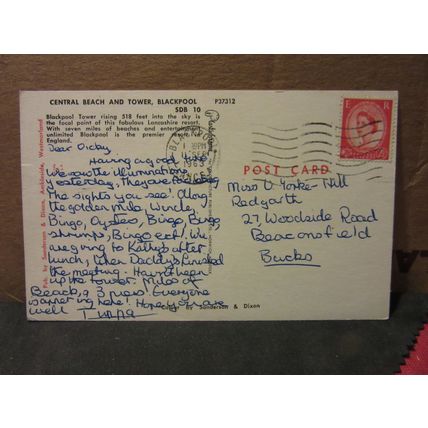 CENTRAL BEACH AND TOWER, BLACKPOOL P37312
SDB 10
Blackpool Tower rising 518 feet into the sky is
the focal point of this fabulous Lancashire resort.
With seven miles of beaches and entertainment
unlimited Blackpool is the premier resort
England.
Pub. by Sanderson & Dixon, Ambleside, Westmorland
Having a good time
We saw the illuminations
yesterday, they are
The sights you see! Along
the golden mile Wincle,
Bingo, Oysters, Bingo, Bingo,
shrimps, Bingo ect! We
are going to Kathy's after
lunch, when Daddy's finished
the meeting. Haven't been
up the tower. Miles of
Beach, & 3 piers. Everyone
is here! Hope you are
well
by Sanderson & Dixon
E R
1963
POST CARD
Miss V. Yorke-Hill
Redgarth
27, Woodside Road
Beaconsfield
Bucks